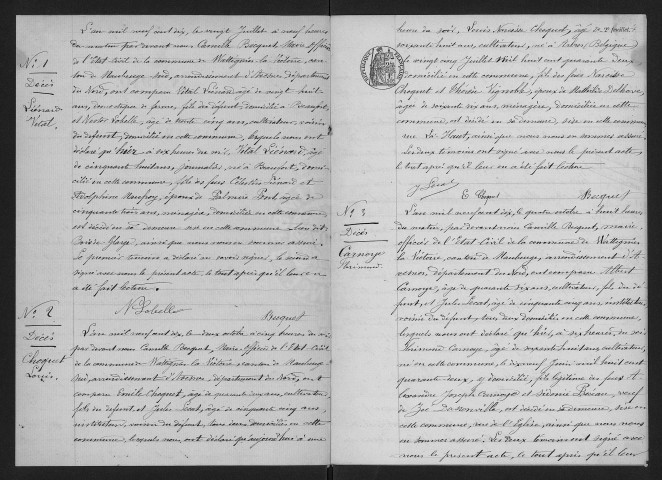 N° 1
Décès
Liénard
Vital.
L'an mil neuf cent dix, le vingt Juillet à neuf heures
du matin par devant nous Camille Bucquet, Maire officier
de l'Etat Civil de la commune de Wattignies la Victoire, can-
ton de Maubeuge arrondissement d'Avesnes, département
du Nord, ont comparu Vital Liénard âgé de vingt huit
ans, fils du défunt, domicilié à Beaufort,
et Nestor Lobelle, âgé de trente cinq ans, cultivateur, voisin
du défunt, domicilié en cette commune, lesquels nous ont
déclaré qu'hier à six heures du soir, Vital Liénard, âgé
de cinquante huit ans, journalier, né à Beaufort, domi-
cilié en cette commune, fils des feus Célestin Liénard et
époux de Palmire Pont, âgée de
cinquante trois ans, ménagère, domiciliée en cette commune
est décédé en sa demeure sise en cette commune, Lieu dit
ainsi que nous nous en sommes assuré.
Le premier témoin a déclaré ne savoir signer, le second a
signé avec nous le présent acte, le tout après qu'il leur en a
été fait lecture.
N Lobelle Bucquet
N° 2
Décès
Choquet
Louis.
L'an mil neuf cent dix, le deux octobre à cinq heures du soir
par devant nous Camille Bucquet, Maire officier de l'Etat Civil
de la commune de Wattignies la Victoire canton de Maubeuge
Sud, arrondissement d'Avesnes, département du Nord, ont
comparu Emile Choquet, âgé de quarante deux ans, cultivateur,
fils du défunt et Jules Lévat, âgé de cinquante cinq ans
instituteur, voisin du défunt, tous deux domiciliés en cette
commune, lesquels nous ont déclaré qu'aujourd'hui à une
2e feuillet
heure du soir, Louis Narcisse Choquet, âgé de
soixante huit ans, cultivateur, né à (Belgique)
le vingt cinq Juillet mil huit cent quarante deux
domicilié en cette commune, fils des feus Narcisse
Choquet et époux de Mathilde Delhaye,
âgée de soixante six ans, ménagère, domiciliée en cette
commune, est décédé en sa demeure, sise en cette commune
rue Là Haut, ainsi que nous nous en sommes assuré.
Les deux témoins ont signé avec nous le présent acte
le tout après qu'il leur en a été fait lecture
J Lévat
E Choquet Bucquet
N° 3
Décès
Carnoye
L'an mil neuf cent dix, le quatre octobre à huit heures
du matin, par devant nous Camille Bucquet, maire
officier de l'Etat Civil de la commune de Wattignies
la Victoire, canton de Maubeuge, arrondissement d'A-
vesnes, département du Nord, ont comparu Albert
Carnoye, âgé de vingt six ans, cultivateur, fils du dé-
funt, et Jules Lévat, âgé de cinquante cinq ans instituteur,
voisin du défunt, tous deux domiciliés en cette commune,
lesquels nous ont déclaré que hier, à six heures, du soir
Carnoye, âgé de soixante huit ans cultivateur,
né en cette commune, le dix neuf Juin mil huit cent
quarante deux, y domicilié, fils légitime des feus A-
lexandre Joseph Carnoye et Sidonie veuf
de est décédé en sa demeure, sise en
cette commune, rue de l'Eglise, ainsi que nous nous en
sommes assuré. Les deux témoins ont signé avec
nous le présent acte, le tout après qu'il leur